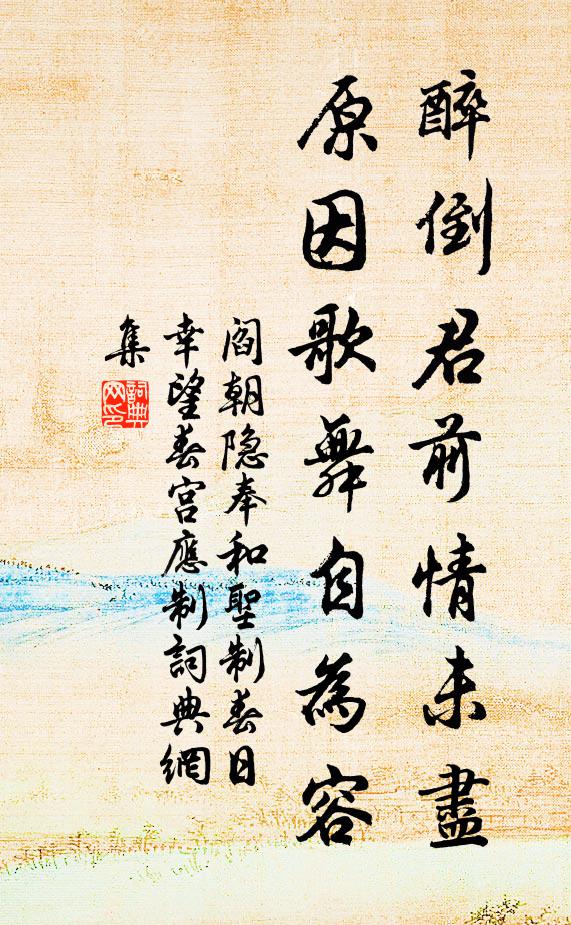 醉倒君前情未盡
原因歌舞自為容
阎朝隐奉和聖制春日
幸望春宮應制詞典網
集
詞典
网印